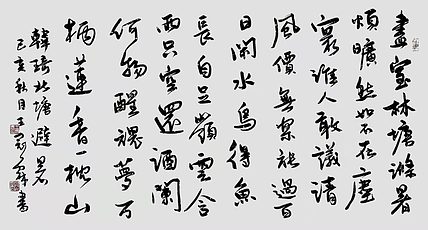 盡室林塘滌暑
煩曠然如不在塵
寰誰人敢議清
風價無樂能過百
日閑水鳥得魚
長自足嶺雲含
雨只空還酒闌
何物醒魂夢万
柄蓮香一枕山
韓琦北塘避暑
己亥秋月書